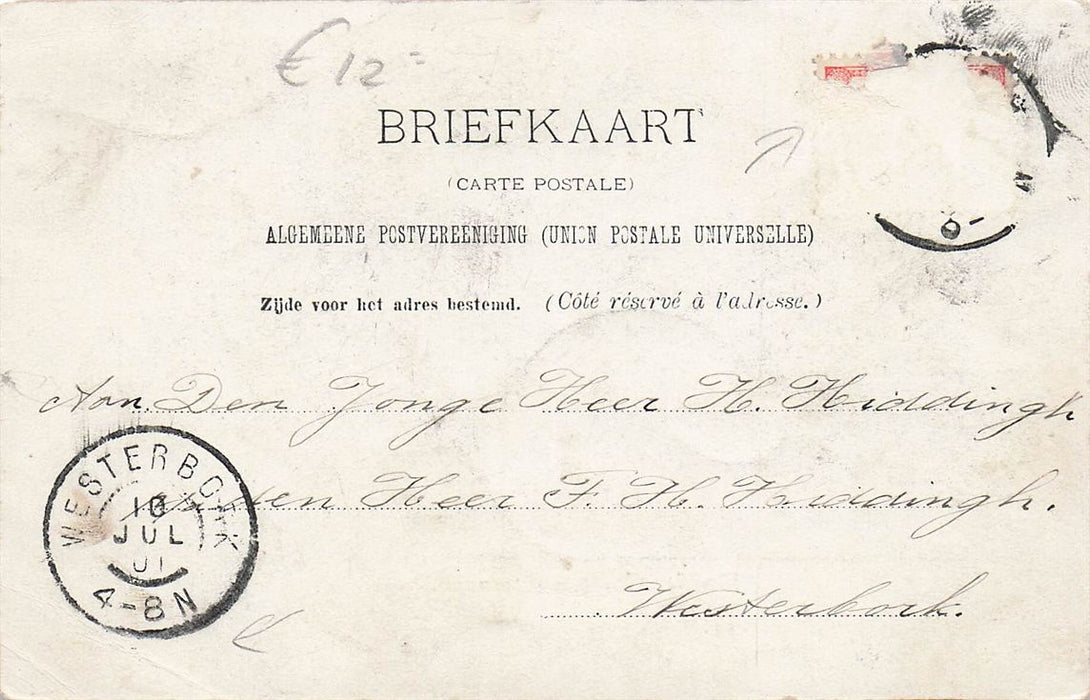 € 12-
BRIEFKAART
(CARTE POSTALE)
ALGEMEENE POSTVEREENIGING (UNION POSTALE UNIVERSELLE)
Zijde voor het adres bestemd. (Côté réservé à l'adresse.)
Aan Den Jonge Heer H. Hiddingh
den Heer F. H. Hiddingh.
Westerbork.
WESTERBORK
10
JUL
01
4-8N